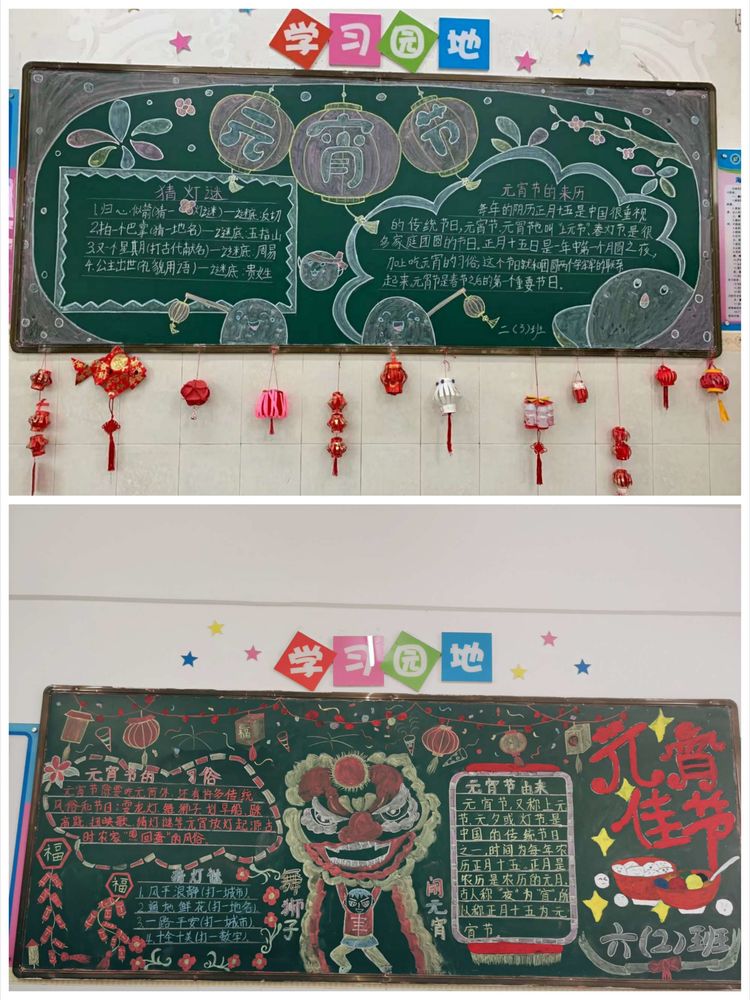 学习园地
元宵节
猜灯谜
1.归心似箭(猜一 灯谜)—谜底:返切
2.拍一个巴掌(猜一地名)—谜底:五指山
3.又一个星期(打古代献名)—谜底:周易
4.公主出世(礼貌用语)—谜底:贵姓
元宵节的来历
每年的阴历正月十五是中国很重视
的传统节日,元宵节。元宵节也叫上元节、春灯节是很
多家庭团圆的节日。正月十五日是一年中第一个月圆之夜,
加上吃元宵的习俗,这个节日就和团圆两个字
起来。元宵节是春节之后的第一个重要节日。
二(3)班
学习园地
福
元宵节的 习俗
元宵节除要吃元宵外,还有许多传统
风俗和节目:耍龙灯、舞狮子、划旱船、踩
高跷、扭秧歌、猜灯谜等元宵放灯起源古
时农家"思回蚕"的风俗
福
福
猜灯谜
1.风平浪静(打一城市)
2.遍地鲜花(打一地名)
3.一路平安(打一城市)
4.十全十美(打一数字)
舞狮子
闹元宵
元宵节由来
元宵节又称上元
节、元夕或灯节是
中国的传统节日
之一,时间为每年农
历正月十五。正月是
农历是农历的元月,
古人称"夜"为"宵",所
以称正月十五为元
宵节
元宵佳节
六(2)班